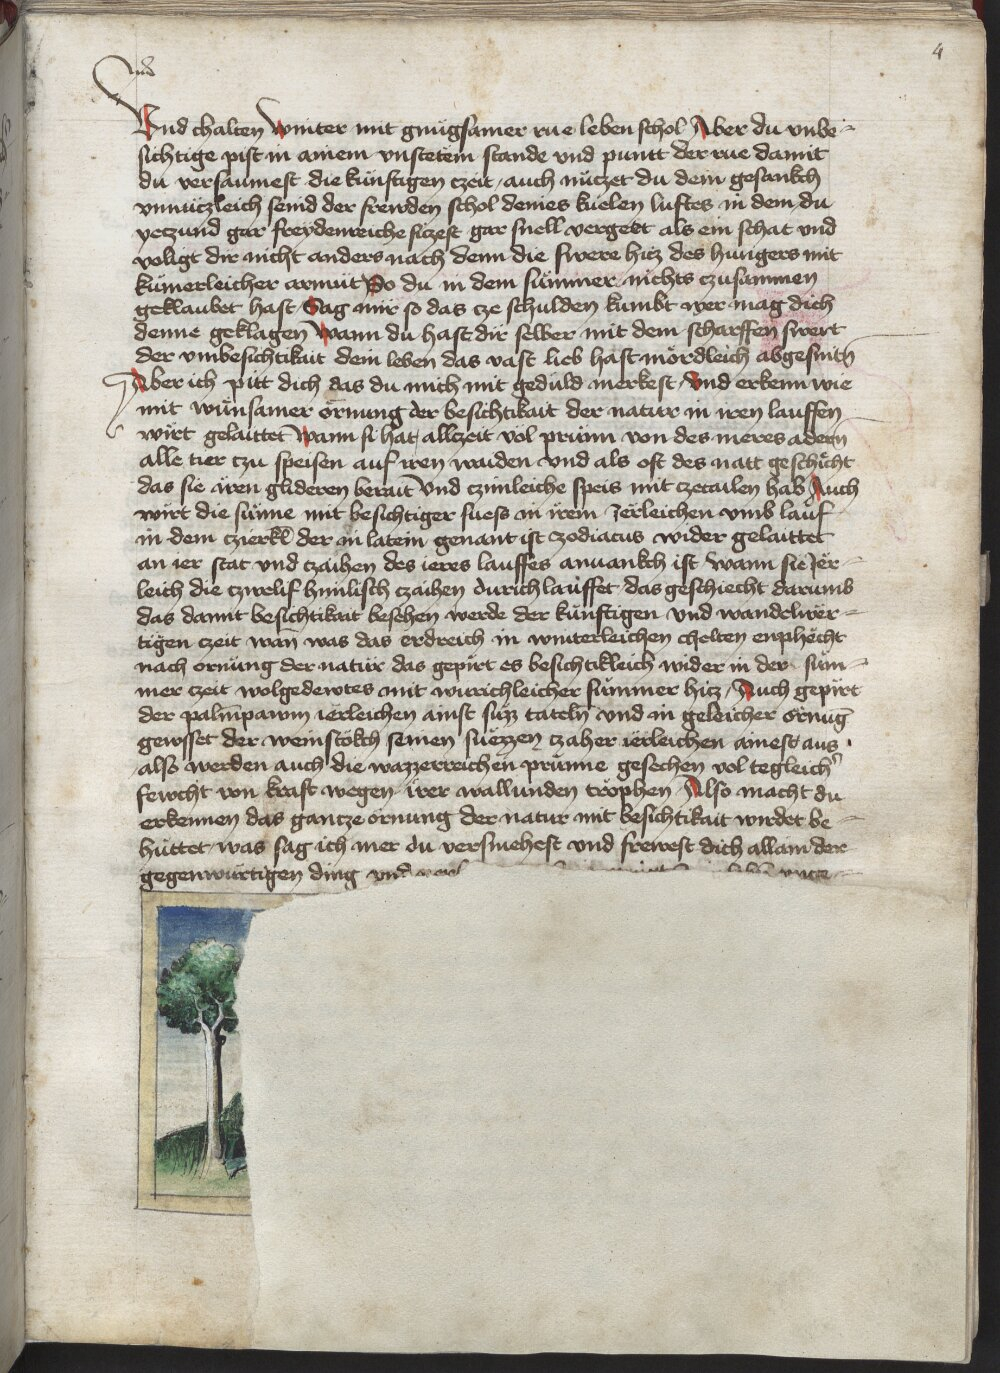 4
Vnd
Vnd chalten winter mit gnügsamer rue leben schol Aber du vnbe-
sichtige pist in ainem vnstetem stande vnd punct der rue damit
du versaumest die künftigen czeit / auch nüczet du dem gesankch
vnnüczleich seind der frewden schol deines küelen luftes in dem du
yeczund gar freydenreiche siczest gar snell vergeet als ein schat vnd
voligt dir nicht anders nach denn die swere hicz des hungers mit
kümerleicher armüt So du in dem summer nichts czusammen
geklaubet hast Sag mir so das cze schulden kumbt wer mag dich
denne geklagen wann du hast dir selber mit dem scharffen swert
der vmbesichtikait dem leben das vast lieb hast mördleich abgesnitn
Aber ich pitt dich das du mich mit geduld merkest / Vnd erkenn wie
mit wünsamer örnung der besichtikait der natur in iren lauffen
wirt gelaittet wann si hat allczeit vol prünn von des meres adern
alle tier czu speisen auf iren waiden vnd als oft des natt geschicht
das sie iren glideren berait vnd czimleiche speis mit czetailen hab Auch
wirt die sunne mit besichtiger fuess in irem Jerleichen vmb lauf
in dem czierkl der in latein genant ist czodiacus wider gelaittet
an ier stat vnd czaihen des ieres lauffes anuankch ist wann sie Jer-
leich die czwelif himlisch czaihen durich lauffet das geschiecht darumb
das damit besichtikait besehen werde der künftigen vnd wandelwer-
tigen czeit wan was das erdreich in winterleichen chelten enphecht
nach ornung der natur das gepirt es besichtikleich wider in der sum-
mer czeit wolgedewtes mit wurichleicher summer hicz / Auch gepirt
der palmpawm ierleichen ainst süzz tateln vnd in geleicher ornug
gewsset der weinstökch seinen suezzen czaher ierleichen ainest aus
also werden auch die wazzerreichen prünne gesechen vol tegleich
fewcht von kraft wegen irer wallunden tröphen Also macht du
erkennen das gantze ornung der natur mit besichtikait wirdet be-
hüttet was sag ich mer du versmehest vnd frewest dich allain der
gegenwürtigen ding vnd